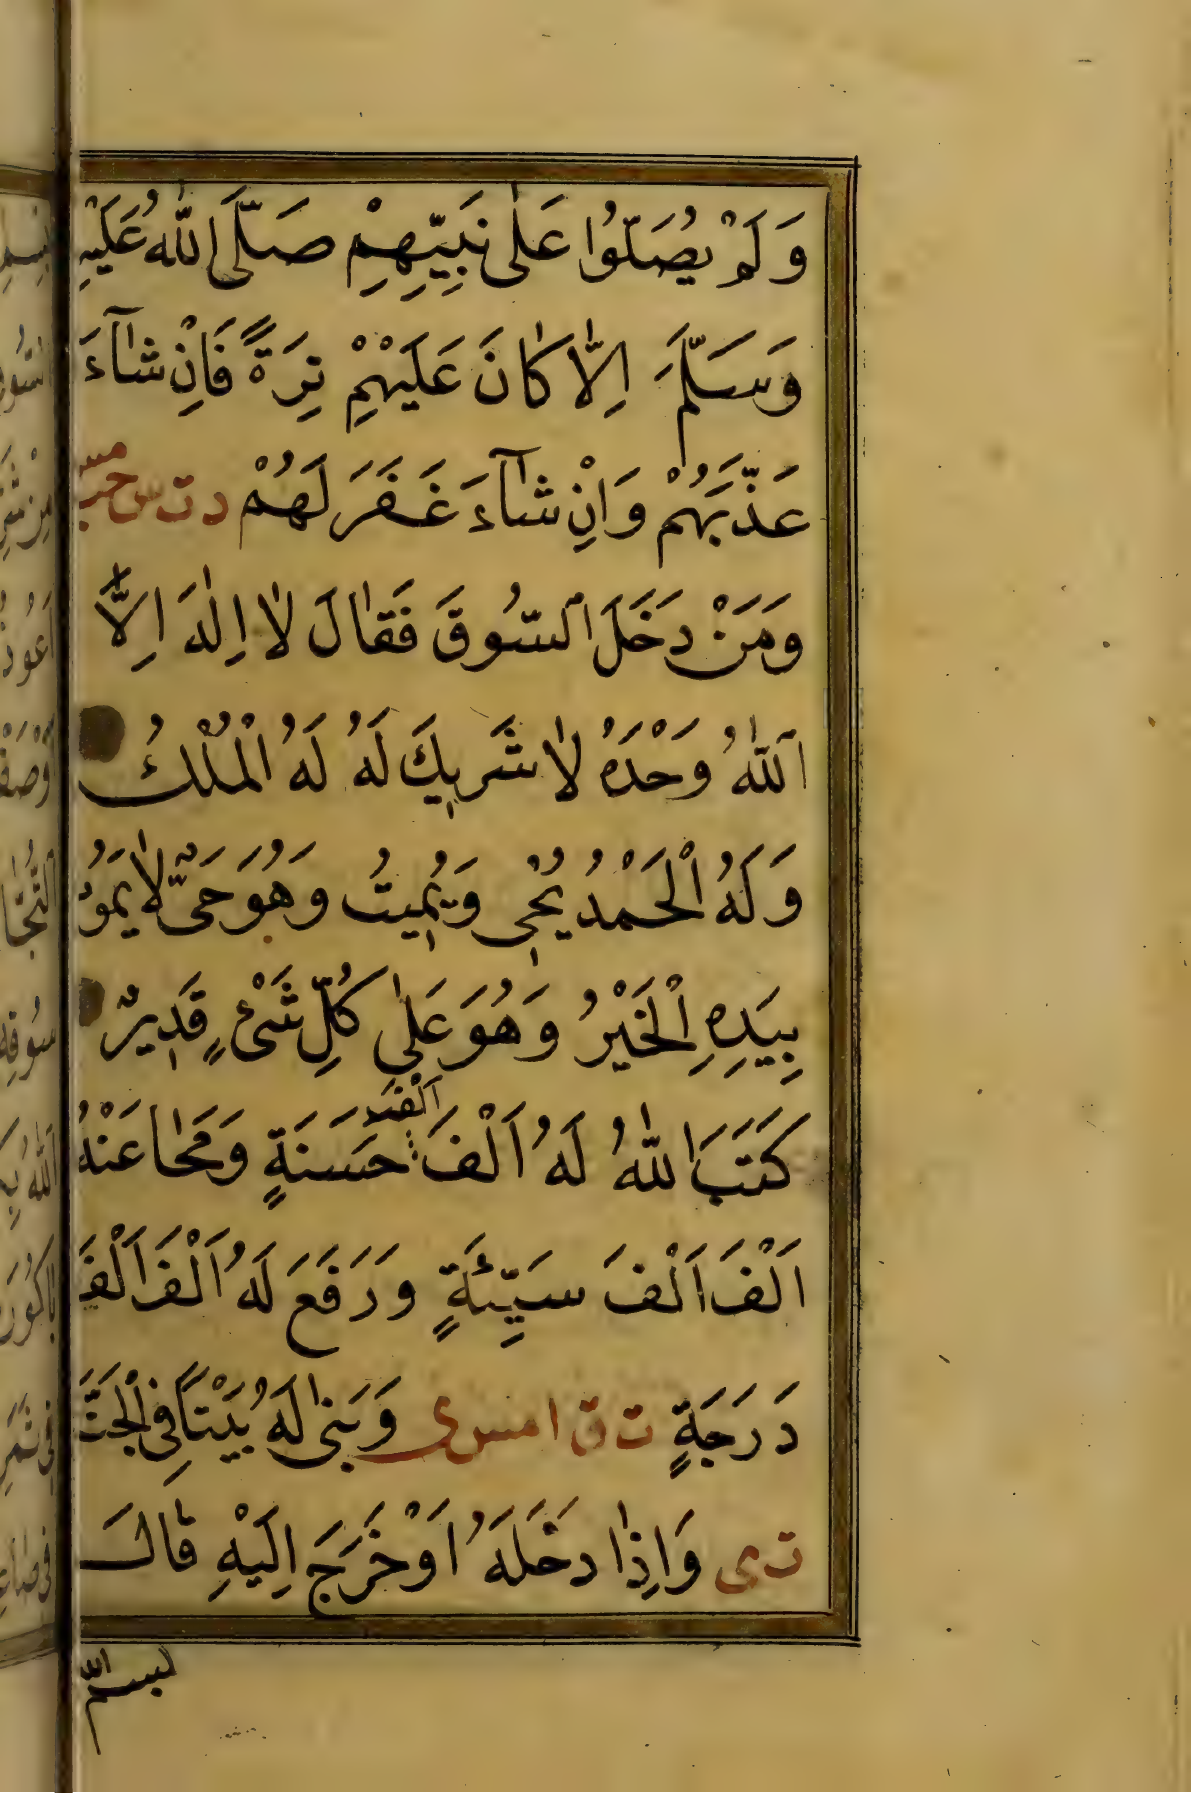 وَلَمْ يُصَلُّوا عَلٰى نَبِيِّهِمْ صَلَّى اللّٰهُ عَلَيْهِ
وَسَلَّمَ اِلَّا كَانَ عَلَيْهِمْ تِرَةً فَاِنْ شَآءَ
عَذَّبَهُمْ وَاِنْ شَآءَ غَفَرَ لَهُمْ د ت س حب مس
وَمَنْ دَخَلَ السُّوقَ فَقَالَ لَا اِلٰهَ اِلَّا
اللّٰهُ وَحْدَهُ لَا شَرِيكَ لَهُ لَهُ الْمُلْكُ
وَلَهُ الْحَمْدُ يُحْيِي وَيُمِيتُ وَهُوَ حَيٌّ لَا يَمُوتُ
بِيَدِهِ الْخَيْرُ وَهُوَ عَلٰى كُلِّ شَىْءٍ قَدِيرٌ
كَتَبَ اللّٰهُ لَهُ اَلْفَ اَلْفِ حَسَنَةٍ وَمَحَا عَنْهُ
اَلْفَ اَلْفَ سَيِّئَةٍ وَرَفَعَ لَهُ اَلْفَ اَلْفَ
دَرَجَةٍ ت ق ا مس ى وَبَنٰى لَهُ بَيْتًا فِى الْجَنَّةِ
ت ى وَاِذَا دَخَلَهُ اَوْ خَرَجَ اِلَيْهِ قَالَ
بسم الله